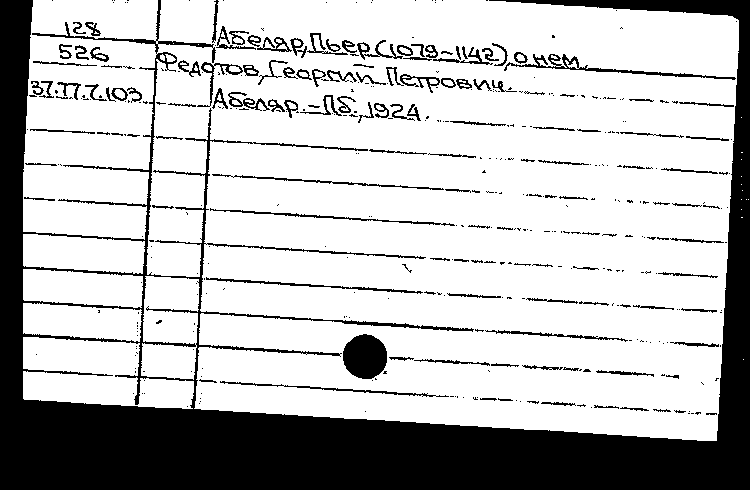 128 Абеляр, Пьер (1079-1142), о нем.
526 Федотов, Георгий Петрович.
37.77.7.103 Абеляр. – Пб., 1924.